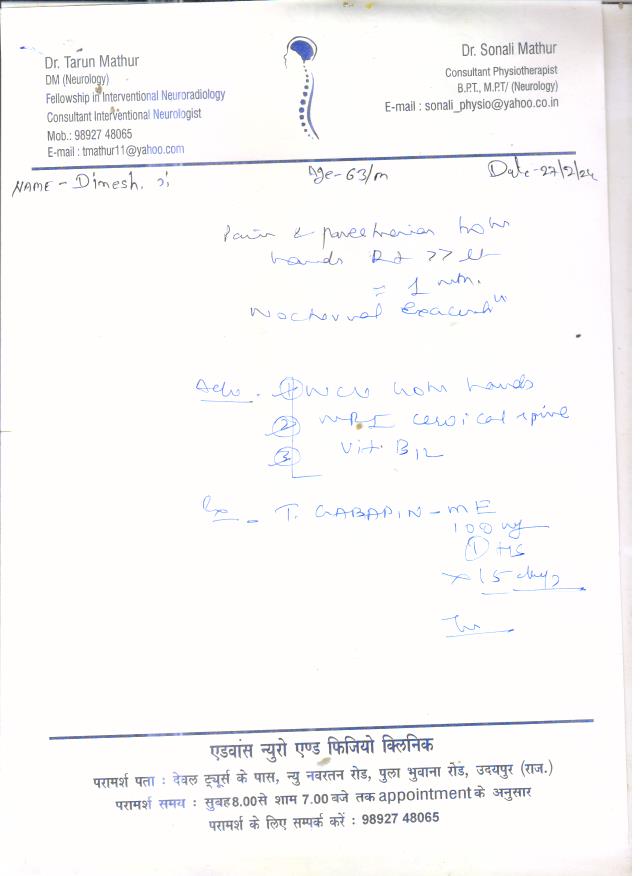 Dr. Tarun Mathur
DM (Neurology)
Fellowship in Interventional Neuroradiology
Consultant Interventional Neurologist
Mob.: 98927 48065
E-mail : tmathur11@yahoo.com
Dr. Sonali Mathur
Consultant Physiotherapist
B.P.T., M.P.T/ (Neurology)
E-mail : sonali_physio@yahoo.co.in
NAME - Dimesh. Ji Age - 63/m Date - 27/2/24
Pain & paresthesias both
hands Rt >> Lt
= 1 mth.
Nocturnal Exacerbtn
Adv. ① NCV both hands
② MRI cervical spine
③ Vit. B12
Rx - T. GABAPIN - ME
100 mg
① HS
x 15 days
एडवांस न्युरो एण्ड फिजियो क्लिनिक
परामर्श पता : देवल ट्यूर्स के पास, न्यु नवरतन रोड, पुला भुवाना रोड, उदयपुर (राज.)
परामर्श समय : सुबह 8.00 से शाम 7.00 बजे तक appointment के अनुसार
परामर्श के लिए सम्पर्क करें : 98927 48065